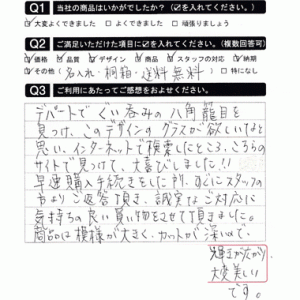 Q1 当社の商品はいかがでしたか？（☑を入れてください。）
☑大変よくできました □よくできました □頑張りましょう
Q2 ご満足いただけた項目に☑を入れてください。（複数回答可）
☑価格 ☑品質 ☑デザイン ☑商品 ☑スタッフの対応 ☑納期
☑その他（名入れ・桐箱・送料無料） □特になし
Q3 ご利用にあたってご感想をおよせください。
デパートでぐい呑みの八角籠目を
見つけ、このデザインのグラスが欲しいなと
思い、インターネットで検索したところ、こちらの
サイトで見つけて、大喜びしました!!
早速購入手続きをしたが、すぐにスタッフの
方よりご返答頂き、誠実なご対応に
気持ちの良い買い物をさせて頂きました。
商品は模様が大きく、カットが深いので、
輝きが広がり、
大変美しい
です。